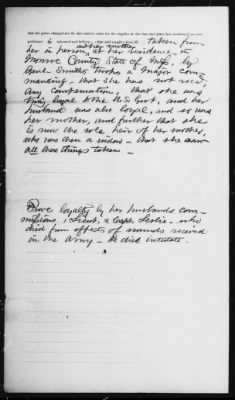 that the prices charged are the fair market value for the supplies at the time and place last mentioned; as your
petitioner is informed and believes; that said supplies were all taken from
and her mother
her in person, at her residence, in
Monroe County, State of Miss, by
Genl Smiths troops a Major com-
manding - that she has not recd
any compensation, that she was
truly loyal to the U.S. Govt, and her
husband was also loyal, and so was
her mother, and further that she
is now the sole heir of her mother,
who was then a widow - that she saw
all these things taken -
Prove loyalty by her husbands com-
missions, 1 Lieut, & Capt. Leslie - who
died from effects of wounds received
in the Army - He died intestate.